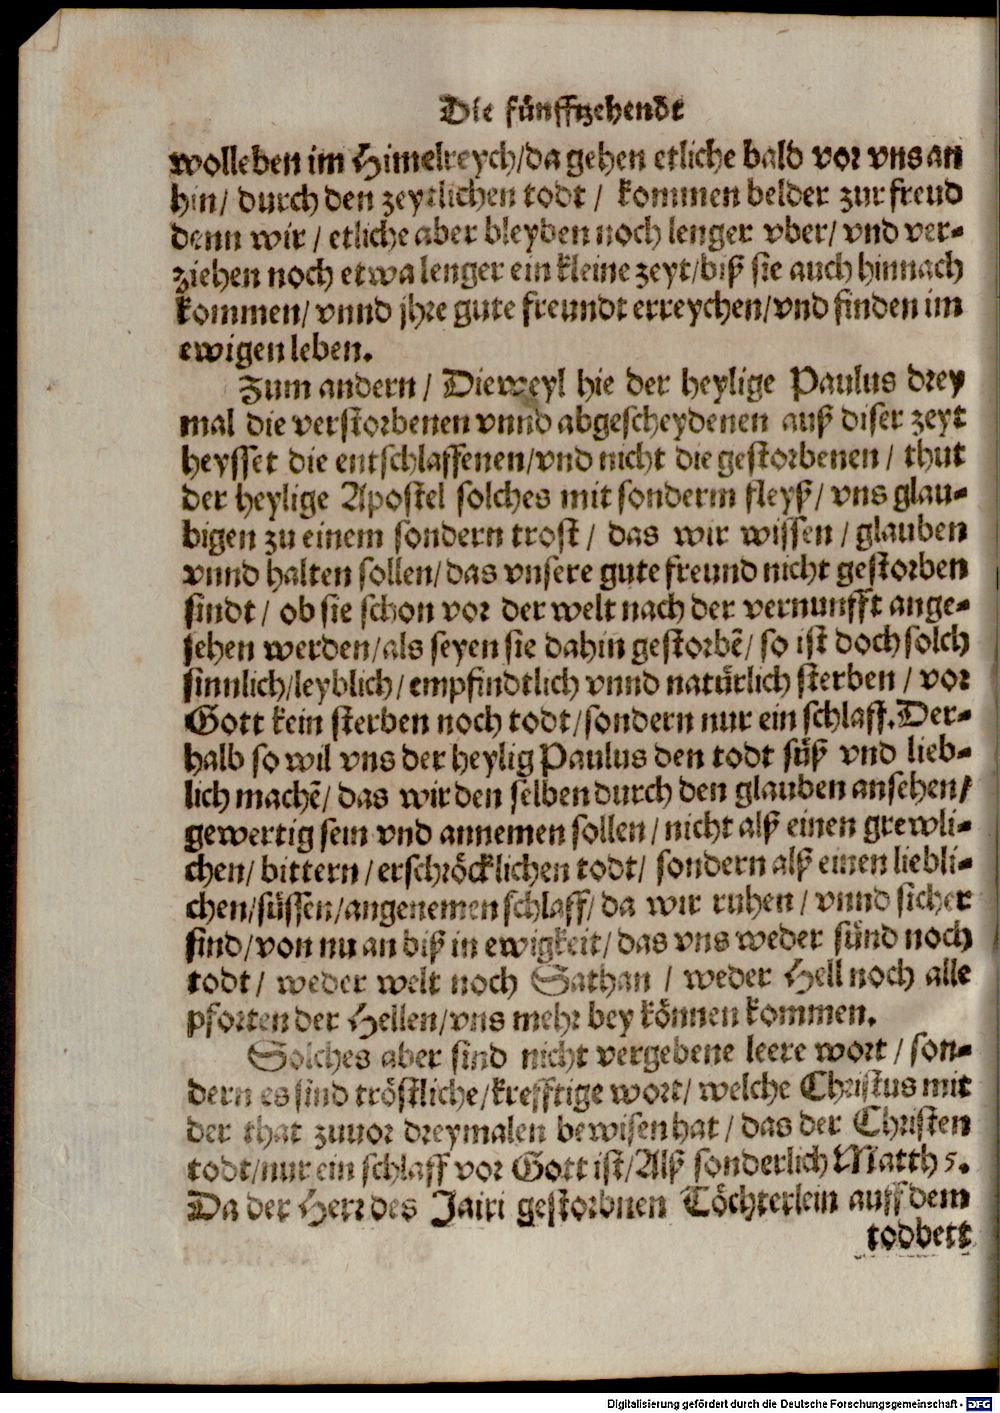 Die fünfftzehendt
wolleben im Himelreych/da gehen etliche bald vor vns an
hin/ durch den zeytlichen todt / kommen belder zur freud
denn wir / etliche aber bleyben noch lenger vber/ vnd ver-
ziehen noch etwa lenger ein kleine zeyt/biß sie auch hinnach
kommen/ vnnd jhre gute freundt erreychen/vnd finden im
ewigen leben.
Zum andern / Dieweyl hie der heylige Paulus drey
mal die verstorbenen vnnd abgescheydenen auß diser zeyt
heysset die entschlaffenen/vnd nicht die gestorbenen / thut
der heylige Apostel solches mit sonderm fleyß/ vns glau-
bigen zu einem sondern trost / das wir wissen / glauben
vnnd halten sollen/das vnsere gute freund nicht gestorben
sindt / ob sie schon vor der welt nach der vernunfft ange-
sehen werden/als seyen sie dahin gestorbẽ/ so ist doch solch
sinnlich/leyblich / empfindtlich vnnd natürlich sterben / vor
Gott kein sterben noch todt/sondern nur ein schlaff.Der-
halb so wil vns der heylig Paulus den todt süß vnd lieb-
lich machẽ/ das wir den selben durch den glauben ansehen/
gewertig sein vnd annemen sollen / nicht alß einen grewli-
chen/ bittern / erschröcklichen todt/ sondern alß einen liebli-
chen/süssen/angenemen schlaff/ da wir ruhen / vnnd sicher
sind/von nu an biß in ewigkeit/ das vns weder sünd noch
todt / weder welt noch Sathan / weder Hell noch alle
pforten der Hellen/vns mehr bey können kommen.
Solches aber sind nicht vergebene leere wort / son-
dern es sind tröstliche/krefftige wort/ welche Christus mit
der that zuuor dreymalen bewisen hat / das der Christen
todt/nur ein schlaff vor Gott ist/Alß sonderlich Matth 5.
Da der Herr des Jairi gestorbnen Töchterlein auff dem
todbett
Digitalisierung gefördert durch die Deutsche Forschungsgemeinschaft - DFG